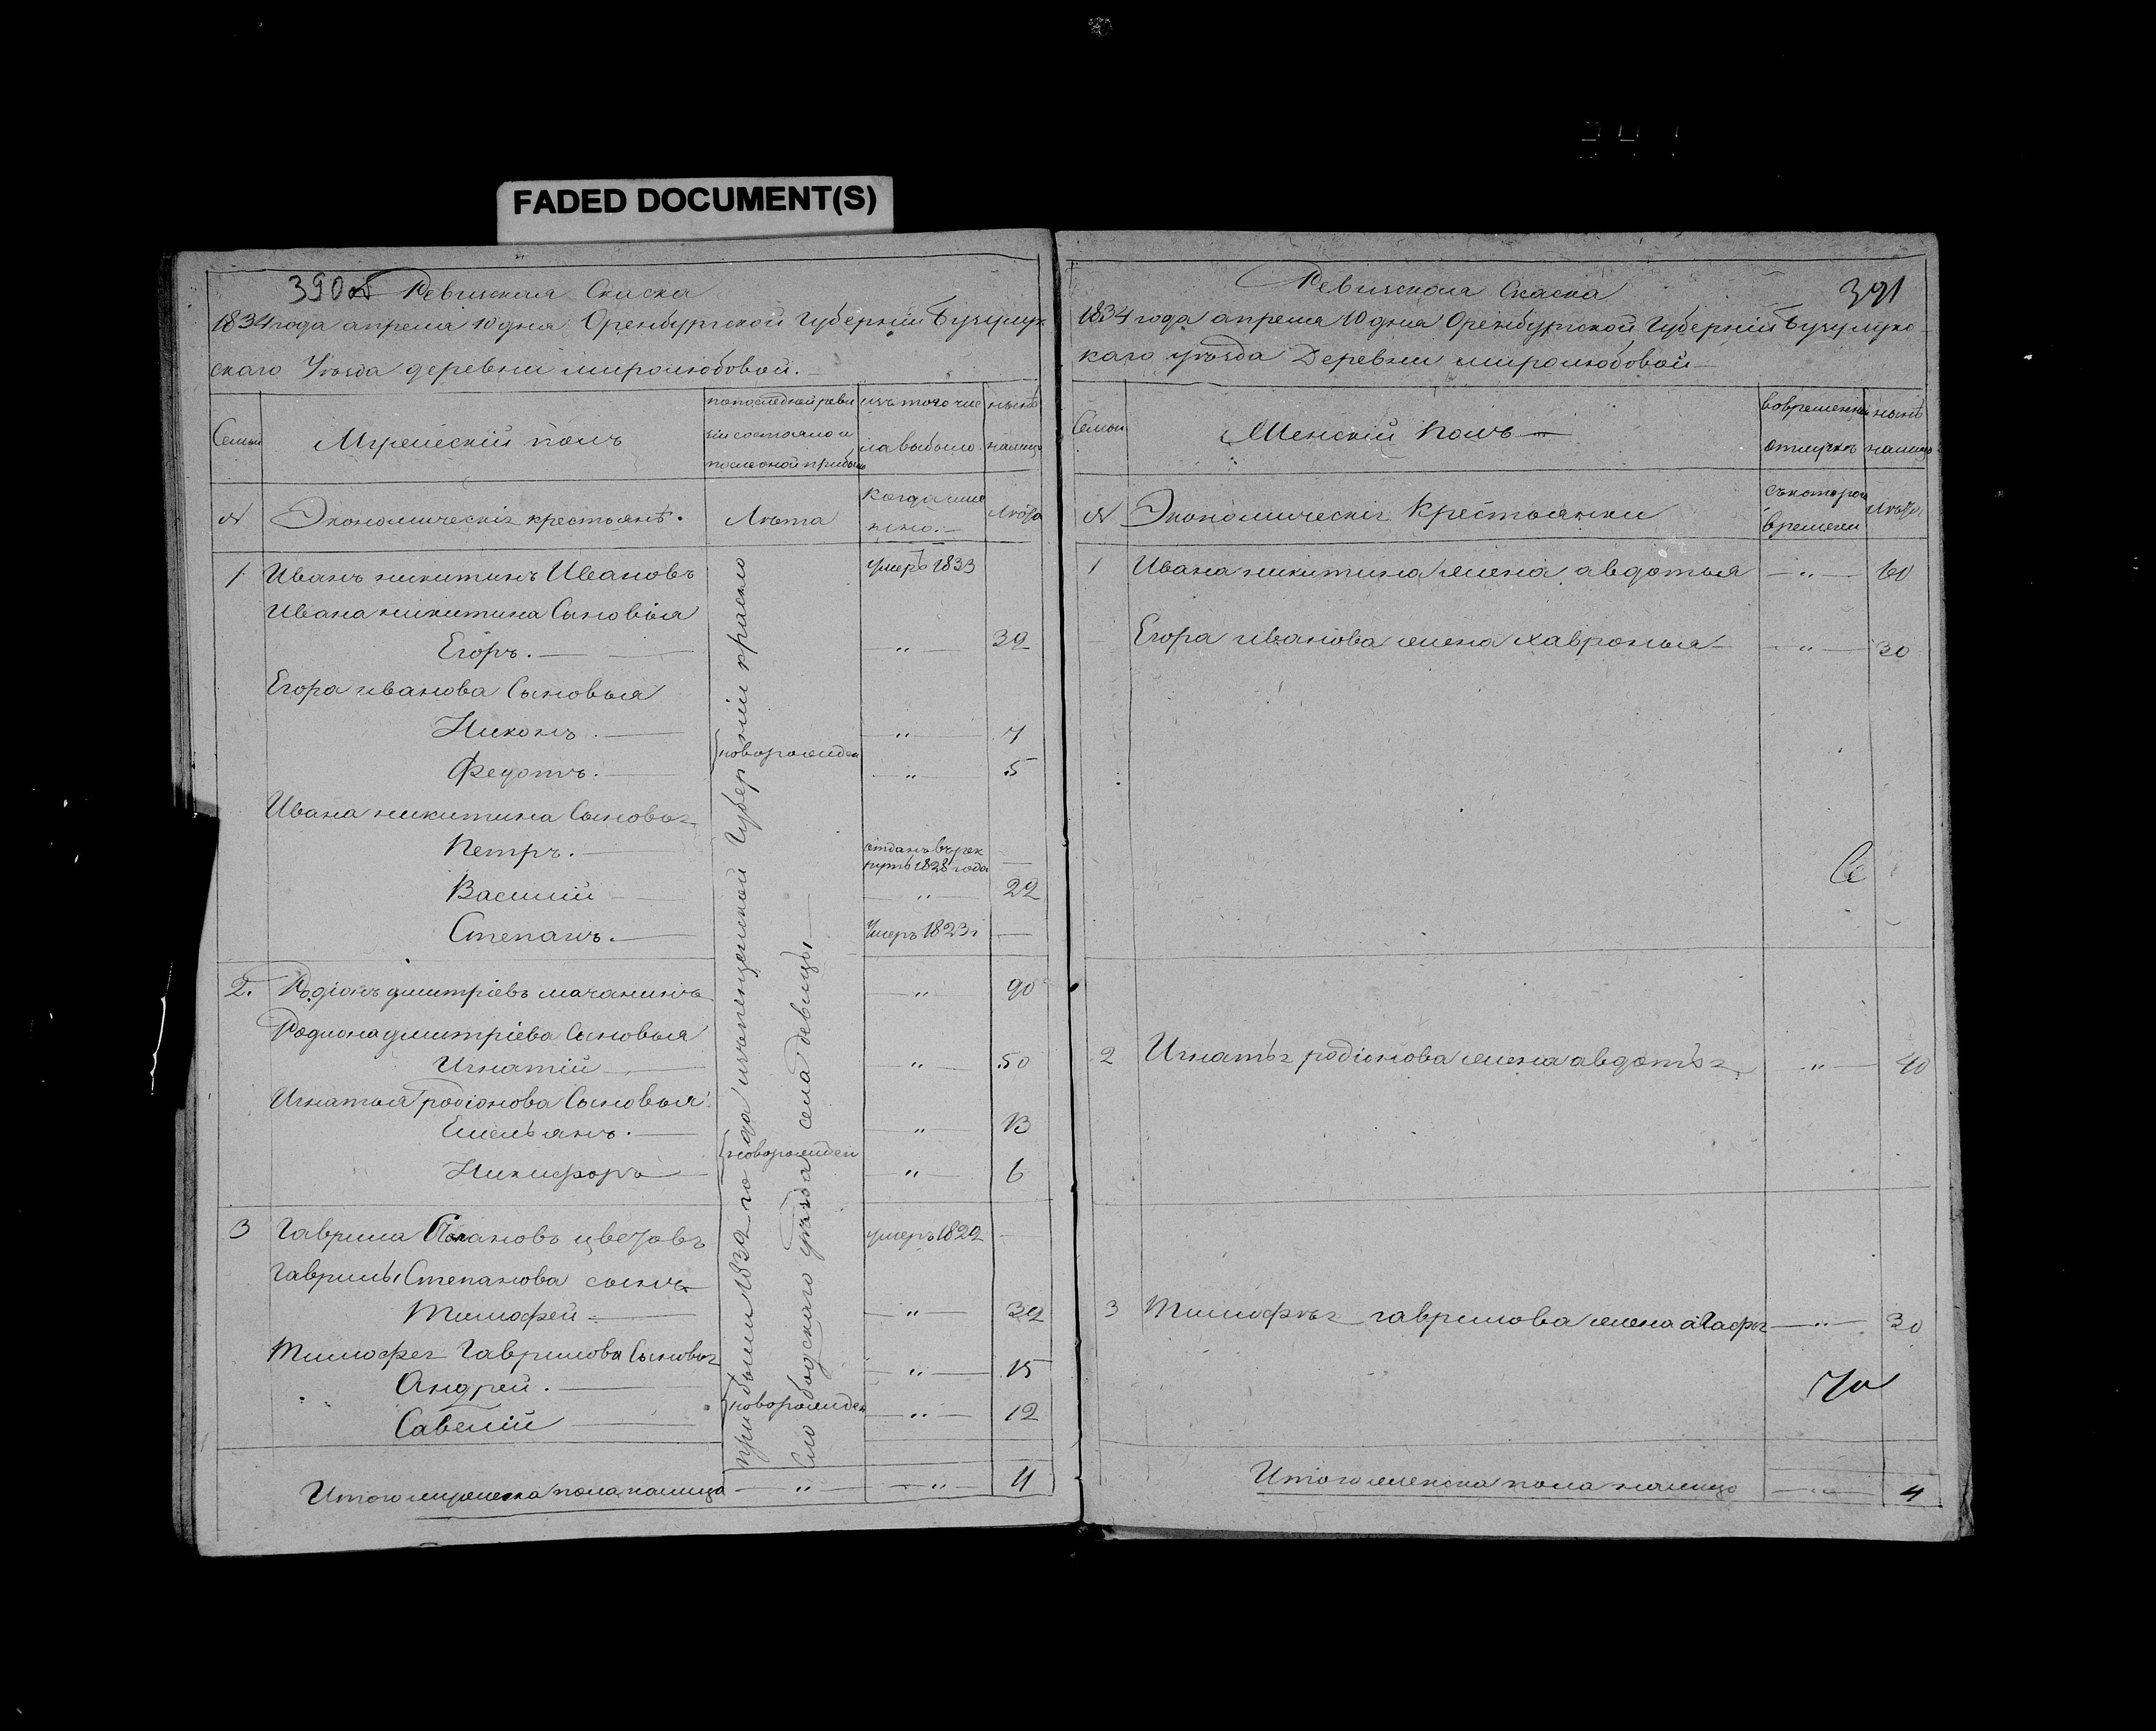 FADED DOCUMENT(S)
390об Ревизская Скаска
1834 года апреля 10 дня Оренбургской Губерніи Бузулук
скаго Уѣзда деревни миролюбовой.
Семьи
Мужескій полъ
по последней реви
зіи состояло и
после оной прибыло
изъ того чис
ла выбыло
нынѣ
налицо
№
Экономическіе крестьянѣ.
Лѣта
Когда име
нно.
Лѣта
1 Иванъ никитинъ Ивановъ умеръ 1833
Ивана никитина Сыновья
Егоръ. " 39
Егора иванова Сыновья
Никонъ. " 7
новорожден
Федотъ. " 5
Ивана никитина Сыновье
Петръ. отданъ въ рек
рутъ 1828 года
Василий " 22
Степанъ. Умеръ 1823 г
2. Родіонъ дмитріевъ мачанинъ " 90
Родиона дмитріева Сыновья
Игнатій " 50
Игнатья родіонова Сыновья
Емельянъ. " 13
новорожден
Никифоръ " 6
3 Гаврила Степановъ цветовъ умеръ 1822
Гаврилы Степанова сынъ
Тимофей " 39
Тимофее Гаврилова Сыновье
Андрей. " 15
новорожден
Савелій " 12
прибыли 1832 го года изъ пензенской Губерніи красно
сло бодскаго уѣзда села девицы
Итого мужеска пола налицо " " 11
Ревизская Скаска 391
1834 года апреля 10 дня Оренбургской Губерніи Бузулукс
каго уѣзда Деревни миролюбовой
Семьи
Женскій полъ
во временной
отлучкѣ
нынѣ
налицо
№
Экономическіе Крестьянки
съ которого
времени
Лѣта
1 Ивана никитина жена авдотья " 60
Егора иванова жена хавронья " 30
2 Игнатье родіонова жена авдотье " 40
3 Тимофѣе гаврилова жена агафье " 30
Итого женска пола налицо " 4